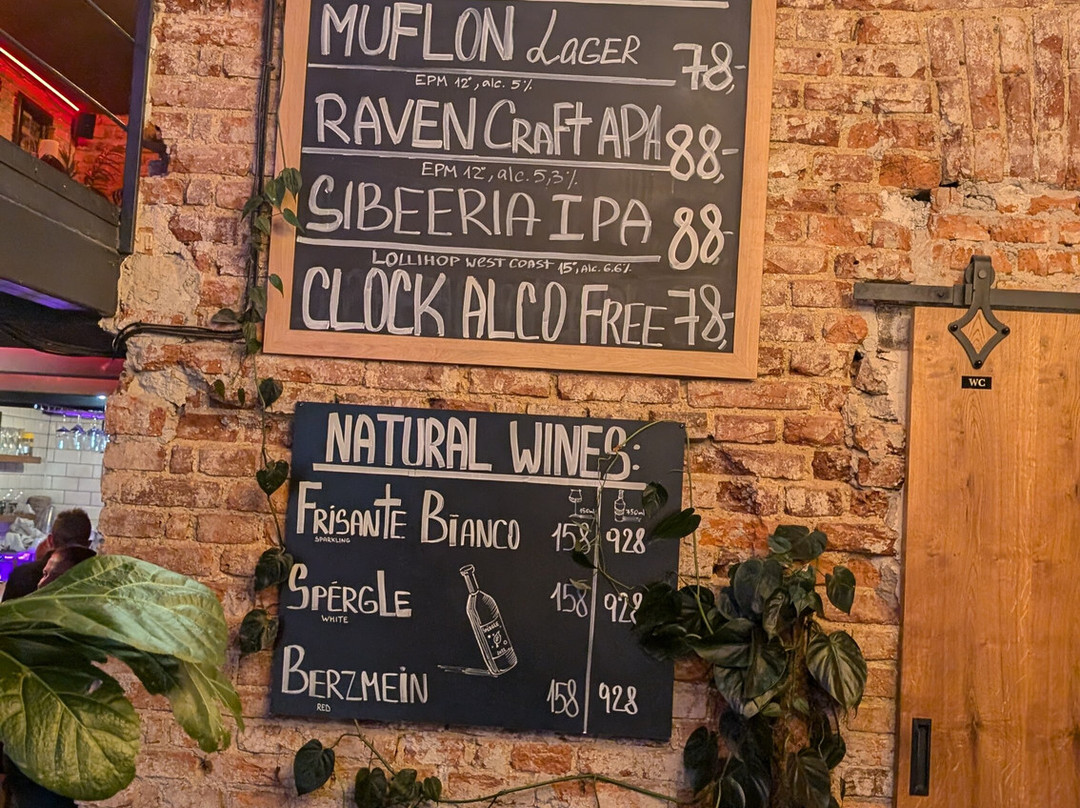 MUFLON LAGER 78,-
EPM 12°, alc. 5%
RAVEN CRAFT APA 88,-
EPM 12°, alc. 5,3%
SIBEERIA IPA 88,-
LOLLIHOP WEST COAST 15°, ALC. 6.6%
CLOCK ALCO FREE 78,-
WC
NATURAL WINES:
750ml
FRISANTE BIANCO 158 928
SPARKLING
SPÉRGLE 158 928
WHITE
BERZMEIN 158 928
RED